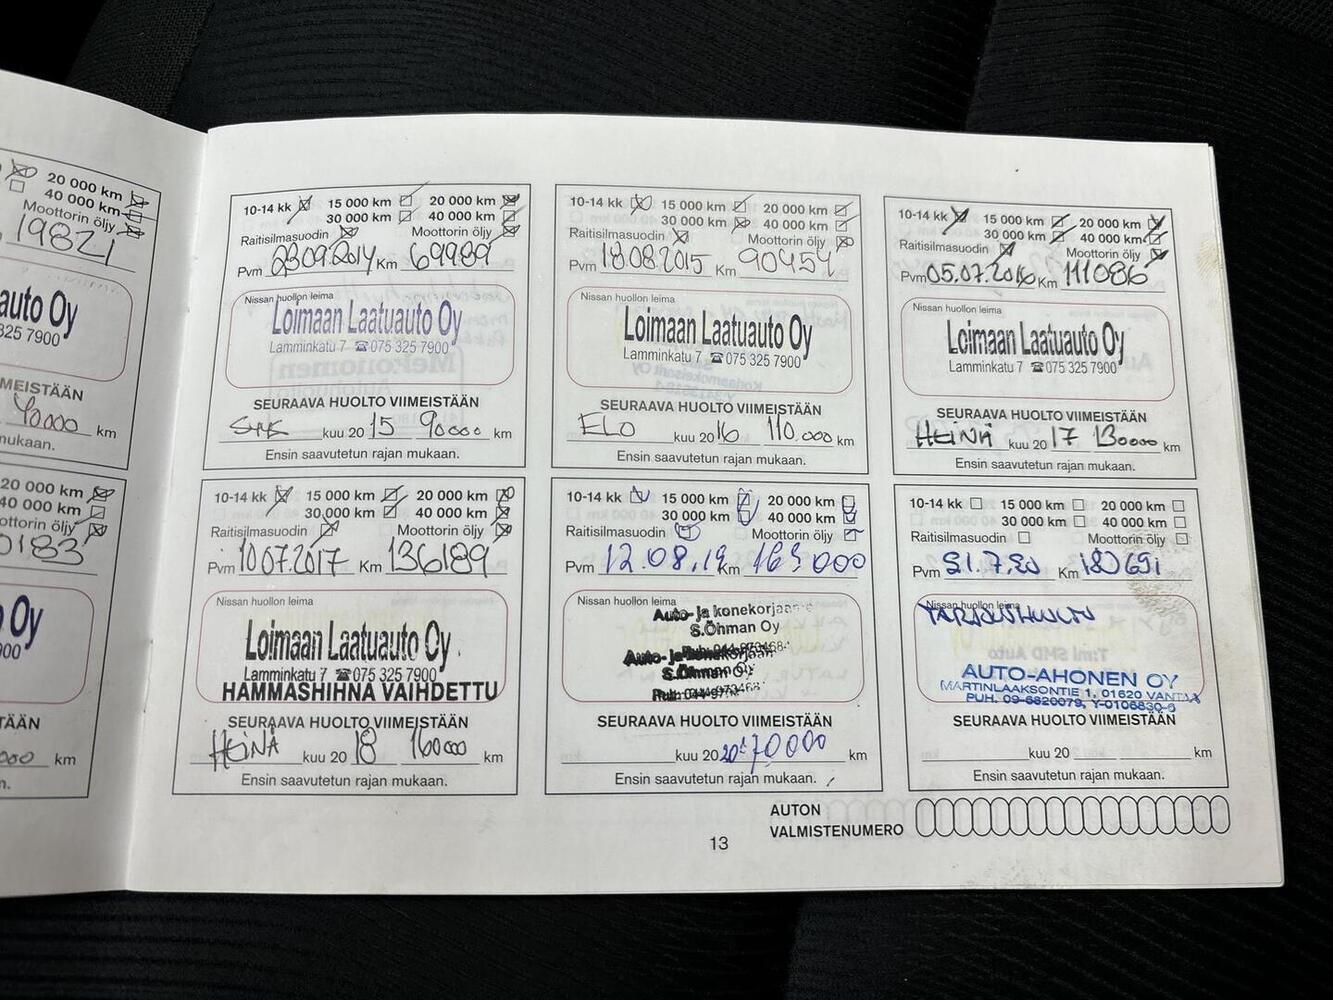 20 000 km
40 000 km
Moottorin öljy
19821
auto Oy
325 7900
IMEISTÄÄN
40000 km
mukaan.
20 000 km
40 000 km
ottorin öljy
0183
Oy
900
TÄÄN
000 km
n.
10-14 kk 15 000 km 20 000 km
30 000 km 40 000 km
Raitisilmasuodin Moottorin öljy
Pvm 23.09.2014 Km 69989
Nissan huollon leima
Loimaan Laatuauto Oy
Lamminkatu 7 ☎075 325 7900
SEURAAVA HUOLTO VIIMEISTÄÄN
SYYS kuu 20 15 90000 km
Ensin saavutetun rajan mukaan.
10-14 kk 15 000 km 20 000 km
30 000 km 40 000 km
Raitisilmasuodin Moottorin öljy
Pvm 18.08.2015 Km 90454
Nissan huollon leima
Loimaan Laatuauto Oy
Lamminkatu 7 ☎075 325 7900
SEURAAVA HUOLTO VIIMEISTÄÄN
ELO kuu 20 16 110.000 km
Ensin saavutetun rajan mukaan.
10-14 kk 15 000 km 20 000 km
30 000 km 40 000 km
Raitisilmasuodin Moottorin öljy
Pvm 05.07.2016 Km 111086
Nissan huollon leima
Loimaan Laatuauto Oy
Lamminkatu 7 ☎075 325 7900
SEURAAVA HUOLTO VIIMEISTÄÄN
HEINÄ kuu 20 17 130000 km
Ensin saavutetun rajan mukaan.
10-14 kk 15 000 km 20 000 km
30 000 km 40 000 km
Raitisilmasuodin Moottorin öljy
Pvm 10.07.2017 Km 136189
Nissan huollon leima
Loimaan Laatuauto Oy
Lamminkatu 7 ☎075 325 7900
HAMMASHIHNA VAIHDETTU
SEURAAVA HUOLTO VIIMEISTÄÄN
HEINÄ kuu 20 18 160000 km
Ensin saavutetun rajan mukaan.
10-14 kk 15 000 km 20 000 km
30 000 km 40 000 km
Raitisilmasuodin Moottorin öljy
Pvm 12.08.19 Km 163000
Nissan huollon leima
Auto- ja konekorjaa
S.Öhman Oy
Auto- ja konekorjaan
S.Öhman Oy
SEURAAVA HUOLTO VIIMEISTÄÄN
kuu 20 20 70000 km
Ensin saavutetun rajan mukaan.
10-14 kk 15 000 km 20 000 km
30 000 km 40 000 km
Raitisilmasuodin Moottorin öljy
Pvm 31.7.20 Km 180691
Nissan huollon leima
TARJOUSHUOLTO
AUTO-AHONEN OY
MARTINLAAKSONTIE 1, 01620 VANTAA
PUH. 09-6820079, Y-0106830-6
SEURAAVA HUOLTO VIIMEISTÄÄN
kuu 20 km
Ensin saavutetun rajan mukaan.
AUTON
VALMISTENUMERO
13